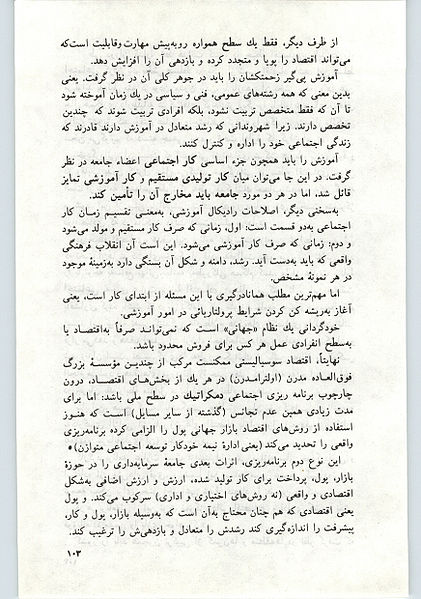 از طرف دیگر، فقط یك سطح همواره روبه‌پیش مهارت وقابلیت است‌که
می‌تواند اقتصاد را پویا و متجدد کرده و بازدهی آن را افزایش دهد.
آموزش پی‌گیر زحمتکشان را باید در جوهر کلی آن در نظر گرفت. یعنی
بدین معنی که همه رشته‌های عمومی، فنی و سیاسی در یك زمان آموخته شود
تا آن که فقط متخصص تربیت نشود، بلکه افرادی تربیت شوند که چندین
تخصص دارند. زیرا شهروندانی که رشد متعادل در آموزش دارند قادرند که
زندگی اجتماعی خود را اداره و کنترل کنند.
آموزش را باید همچون جزء اساسی کار اجتماعی اعضاء جامعه در نظر
گرفت. در این جا می‌توان میان کار تولیدی مستقیم و کار آموزشی تمایز
قائل شد، اما در هر دو مورد جامعه باید مخارج آن را تأمین کند.
به‌سخنی دیگر، اصلاحات رادیکال آموزشی، به‌معنـی تقسیـم زمـان کار
اجتماعی به‌دو قسمت است: اول، زمانی که صرف کار مستقیم و مولد می‌شود
و دوم؛ زمانی که صرف کار آموزشی می‌شود. این است آن انقلاب فرهنگی
واقعی که باید به‌دست آید. رشد، دامنه و شکل آن بستگی دارد به‌زمینهٔ موجود
در هر نمونهٔ مشخص.
اما مهم‌ترین مطلب همانادرگیری با این مسئله از ابتدای کار است، یعنی
آغاز به‌ریشه کن کردن شرایط پرولتاریائی در امور آموزشی.
خودگردانی یك نظام «جهانی» اسـت که نمی‌توانـد صرفاً به‌اقتصـاد یا
به‌سطح انفرادی عمل هر کس برای فروش محدود باشد.
نهایتاً، اقتصاد سوسیالیستی ممکنست مرکب از چندیـن مؤسسـهٔ بزرگ
فوق‌العـاده مدرن (اولترامـدرن) در هر یك از بخش‌هـای اقتصـاد، درون
چارچوب برنامه ریزی اجتماعی دمکراتیك در سطح ملی باشد؛ اما برای
مدت زیادی همین عدم تجانس (گذشته از سایر مسایل) است که هنـوز
استفاده از روش‌های اقتصاد بازار جهانی پول را الزامی کرده برنامه‌ریزی
واقعی را تحدید می‌کند (یعنی ادارهٔ نیمه خودکار توسعه اجتماعی متوازن)•
این نوع دوم برنامه‌ریزی، اثرات بعدی جامعهٔ سرمایه‌داری را در حوزهٔ
بازار، پول، پرداخت برای کار تولید شده، ارزش و ارزش اضافی به‌شکل
اقتصادی و واقعی (نه روش‌های اختیاری و اداری) سرکوب می‌کند. و پول
یعنی اقتصادی که هم چنان محتاج به‌آن است که به‌وسیله بازار، پول و کار،
پیشرفت را اندازه‌گیری کند رشدش را متعادل و بازدهی‌ش را ترغیب کند.
۱۰۳